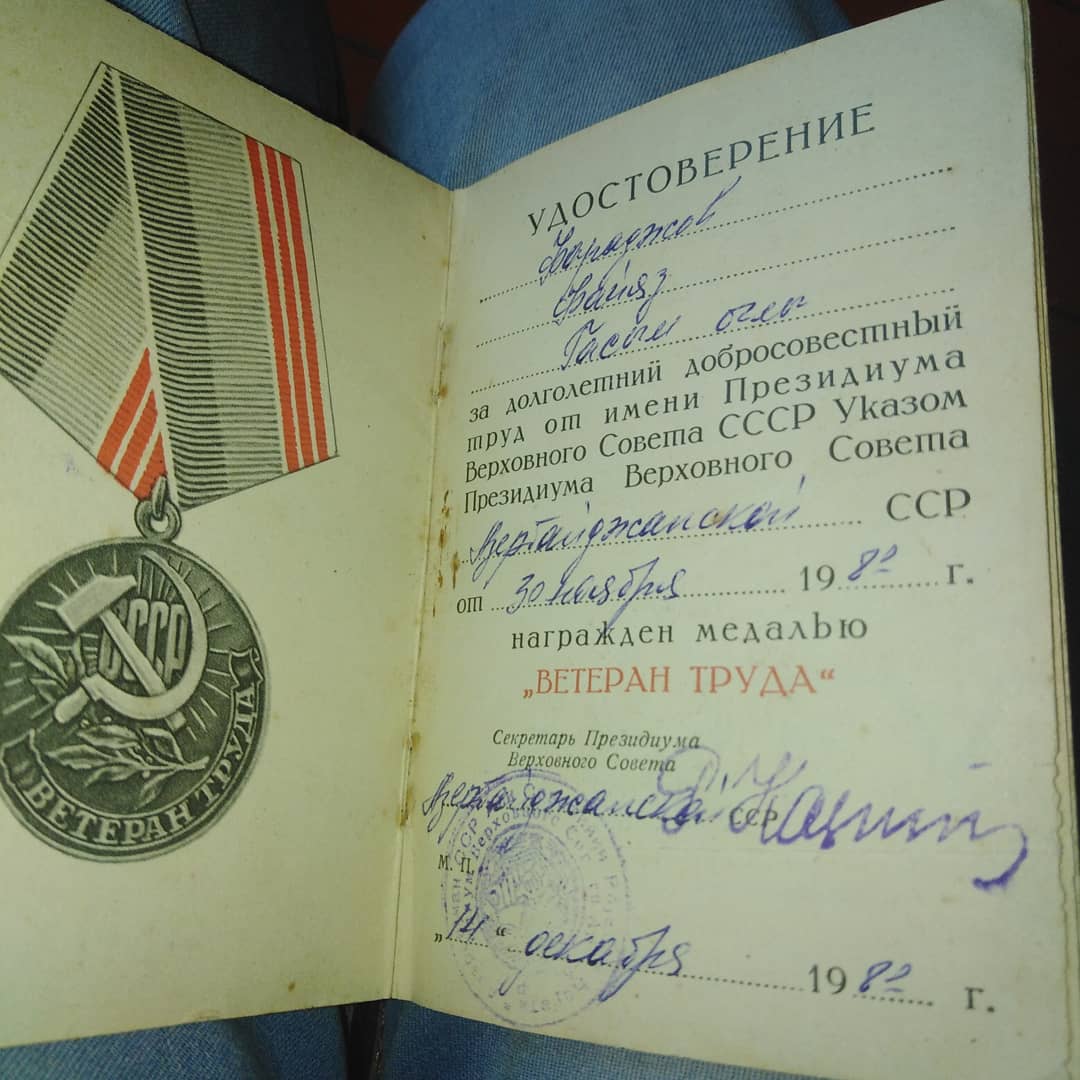 СССР
ВЕТЕРАН ТРУДА
УДОСТОВЕРЕНИЕ
Файяз
Гасым оглы
за долголетний добросовестный
труд от имени Президиума
Верховного Совета СССР Указом
Президиума Верховного Совета
Азербайджанской ССР
от 30 ноября 1982 г.
награжден медалью
„ВЕТЕРАН ТРУДА“
Секретарь Президиума
Верховного Совета
Азербайджанской ССР
М. П.
„14“ декабря 1982 г.